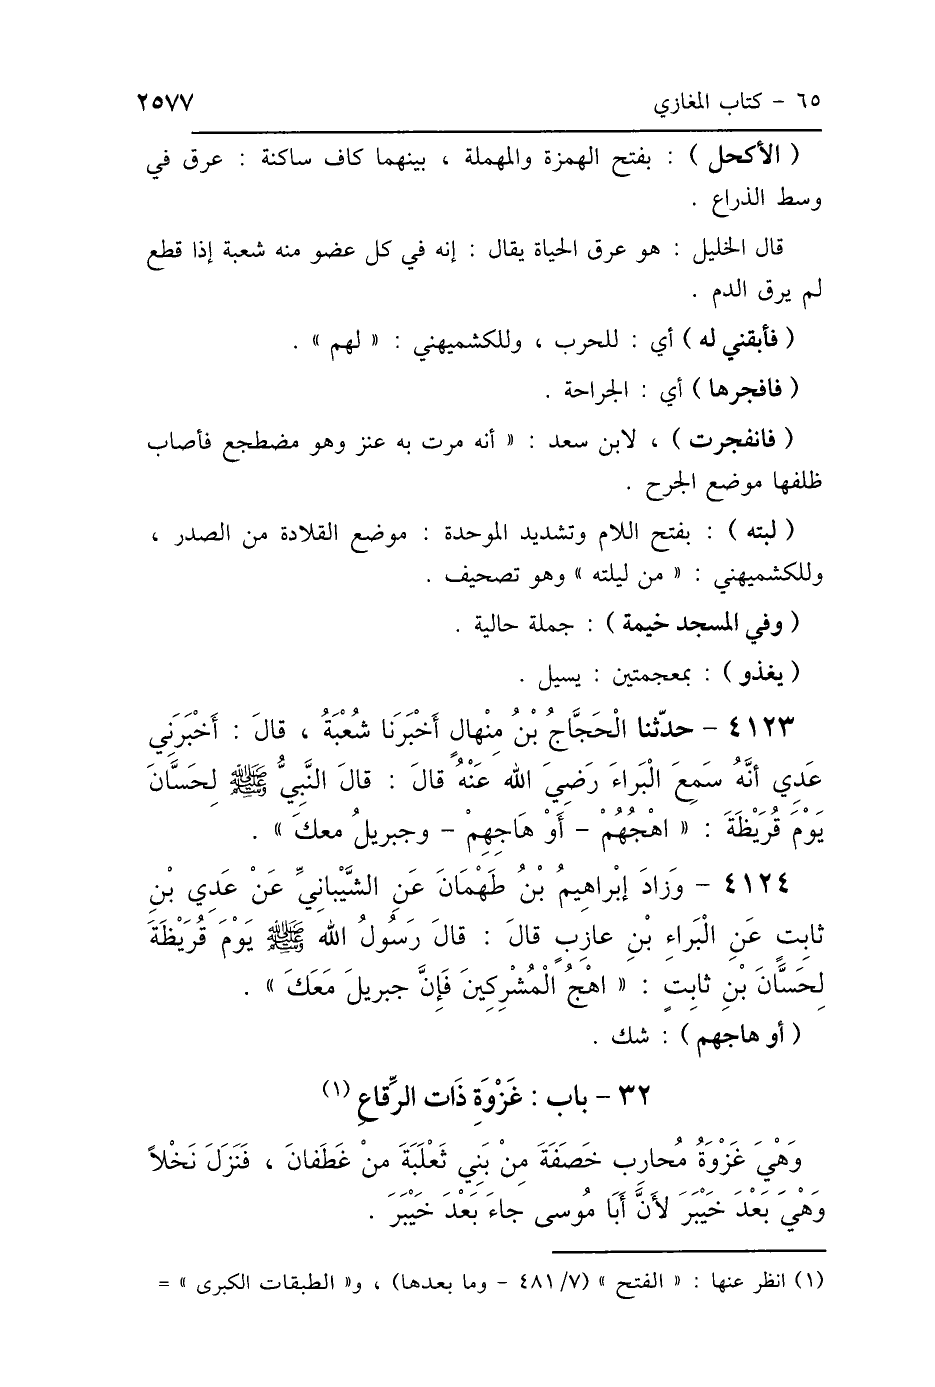 ٦٥ - كتاب المغازي ٢٥٧٧
( الأكحل ) : بفتح الهمزة والمهملة ، بينهما كاف ساكنة : عرق في
وسط الذراع .
قال الخليل : هو عرق الحياة يقال : إنه في كل عضو منه شعبة إذا قطع
لم يرق الدم .
( فأبقني له ) أي : للحرب ، وللكشميهني : « لهم » .
( فافجرها ) أي : الجراحة .
( فانفجرت ) ، لابن سعد : « أنه مرت به عنز وهو مضطجع فأصاب
ظلفها موضع الجرح .
( لبته ) : بفتح اللام وتشديد الموحدة : موضع القلادة من الصدر ،
وللكشميهني : « من ليلته » وهو تصحيف .
( وفي المسجد خيمة ) : جملة حالية .
( يغذو ) : بمعجمتين : يسيل .
٤١٢٣ - حدّثنا الْحَجَّاجُ بْنُ مِنْهالٍ أَخْبَرَنا شُعْبَةُ ، قالَ : أَخْبَرَنِي
عَدِي أنَّهُ سَمِعَ الْبَراءَ رَضِيَ الله عَنْهُ قالَ : قالَ النَّبِيُّ ﷺ لِحَسَّانَ
يَوْمَ قُرَيْظَةَ : « اهْجُهُمْ - أَوْ هَاجِهِمْ - وجبريلُ معكَ » .
٤١٢٤ - وَزادَ إبْراهِيمُ بْنُ طَهْمَانَ عَنِ الشَّيْبانِيِّ عَنْ عَدِي بْنِ
ثابِتٍ عَنِ الْبَراءِ بْنِ عازِبٍ قالَ : قالَ رَسُولُ الله ﷺ يَوْمَ قُرَيْظَةَ
لِحَسَّانَ بْنِ ثابِتٍ : « اهْجُ الْمُشْرِكِينَ فَإِنَّ جبريلَ مَعَكَ » .
( أو هاجهم ) : شك .
٣٢ - باب : غَزْوَةِ ذَات الرِّقاعِ (١)
وَهْيَ غَزْوَةُ مُحارِبِ خَصَفَةَ مِنْ بَنِي ثَعْلَبَةَ مِنْ غَطَفانَ ، فَنَزَلَ نَخْلاً
وَهْيَ بَعْدَ خَيْبَرَ لأَنَّ أَبَا مُوسى جاءَ بَعْدَ خَيْبَرَ .
(١) انظر عنها : « الفتح » (٧/ ٤٨١ - وما بعدها) ، و« الطبقات الكبرى » =